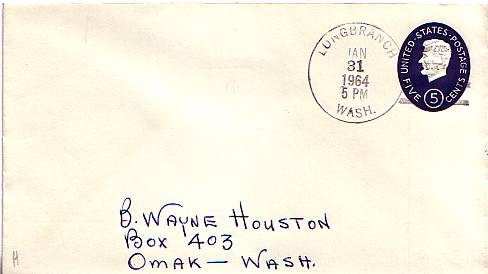 LONGBRANCH
JAN
31
1964
5 PM
WASH.
UNITED·STATES·POSTAGE
FIVE 5 CENTS
B. WAYNE HOUSTON
BOX 403
OMAK — WASH.
H